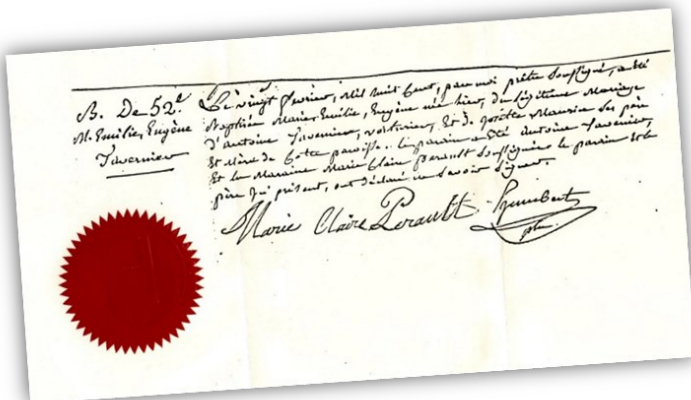 B. De 52.e
M. Emilie, Eugène
Tavernier
Le vingt fevrier, Mil huit Cent, par moi prêtre Soussigné, a été
Baptisée Marie, Emilie, Eugène née hier, du légitime Mariage
d'antoine Tavernier, voiturier, Et de Josette Maurice Ses père
Et Mère de Cette paroisse. le parain a été antoine Tavernier,
Et la Maraine Marie Claire perault Soussignée le parain et le
père ici présent, ont déclaré ne Savoir Signer.
Marie Claire Perault Humbert
ptre.